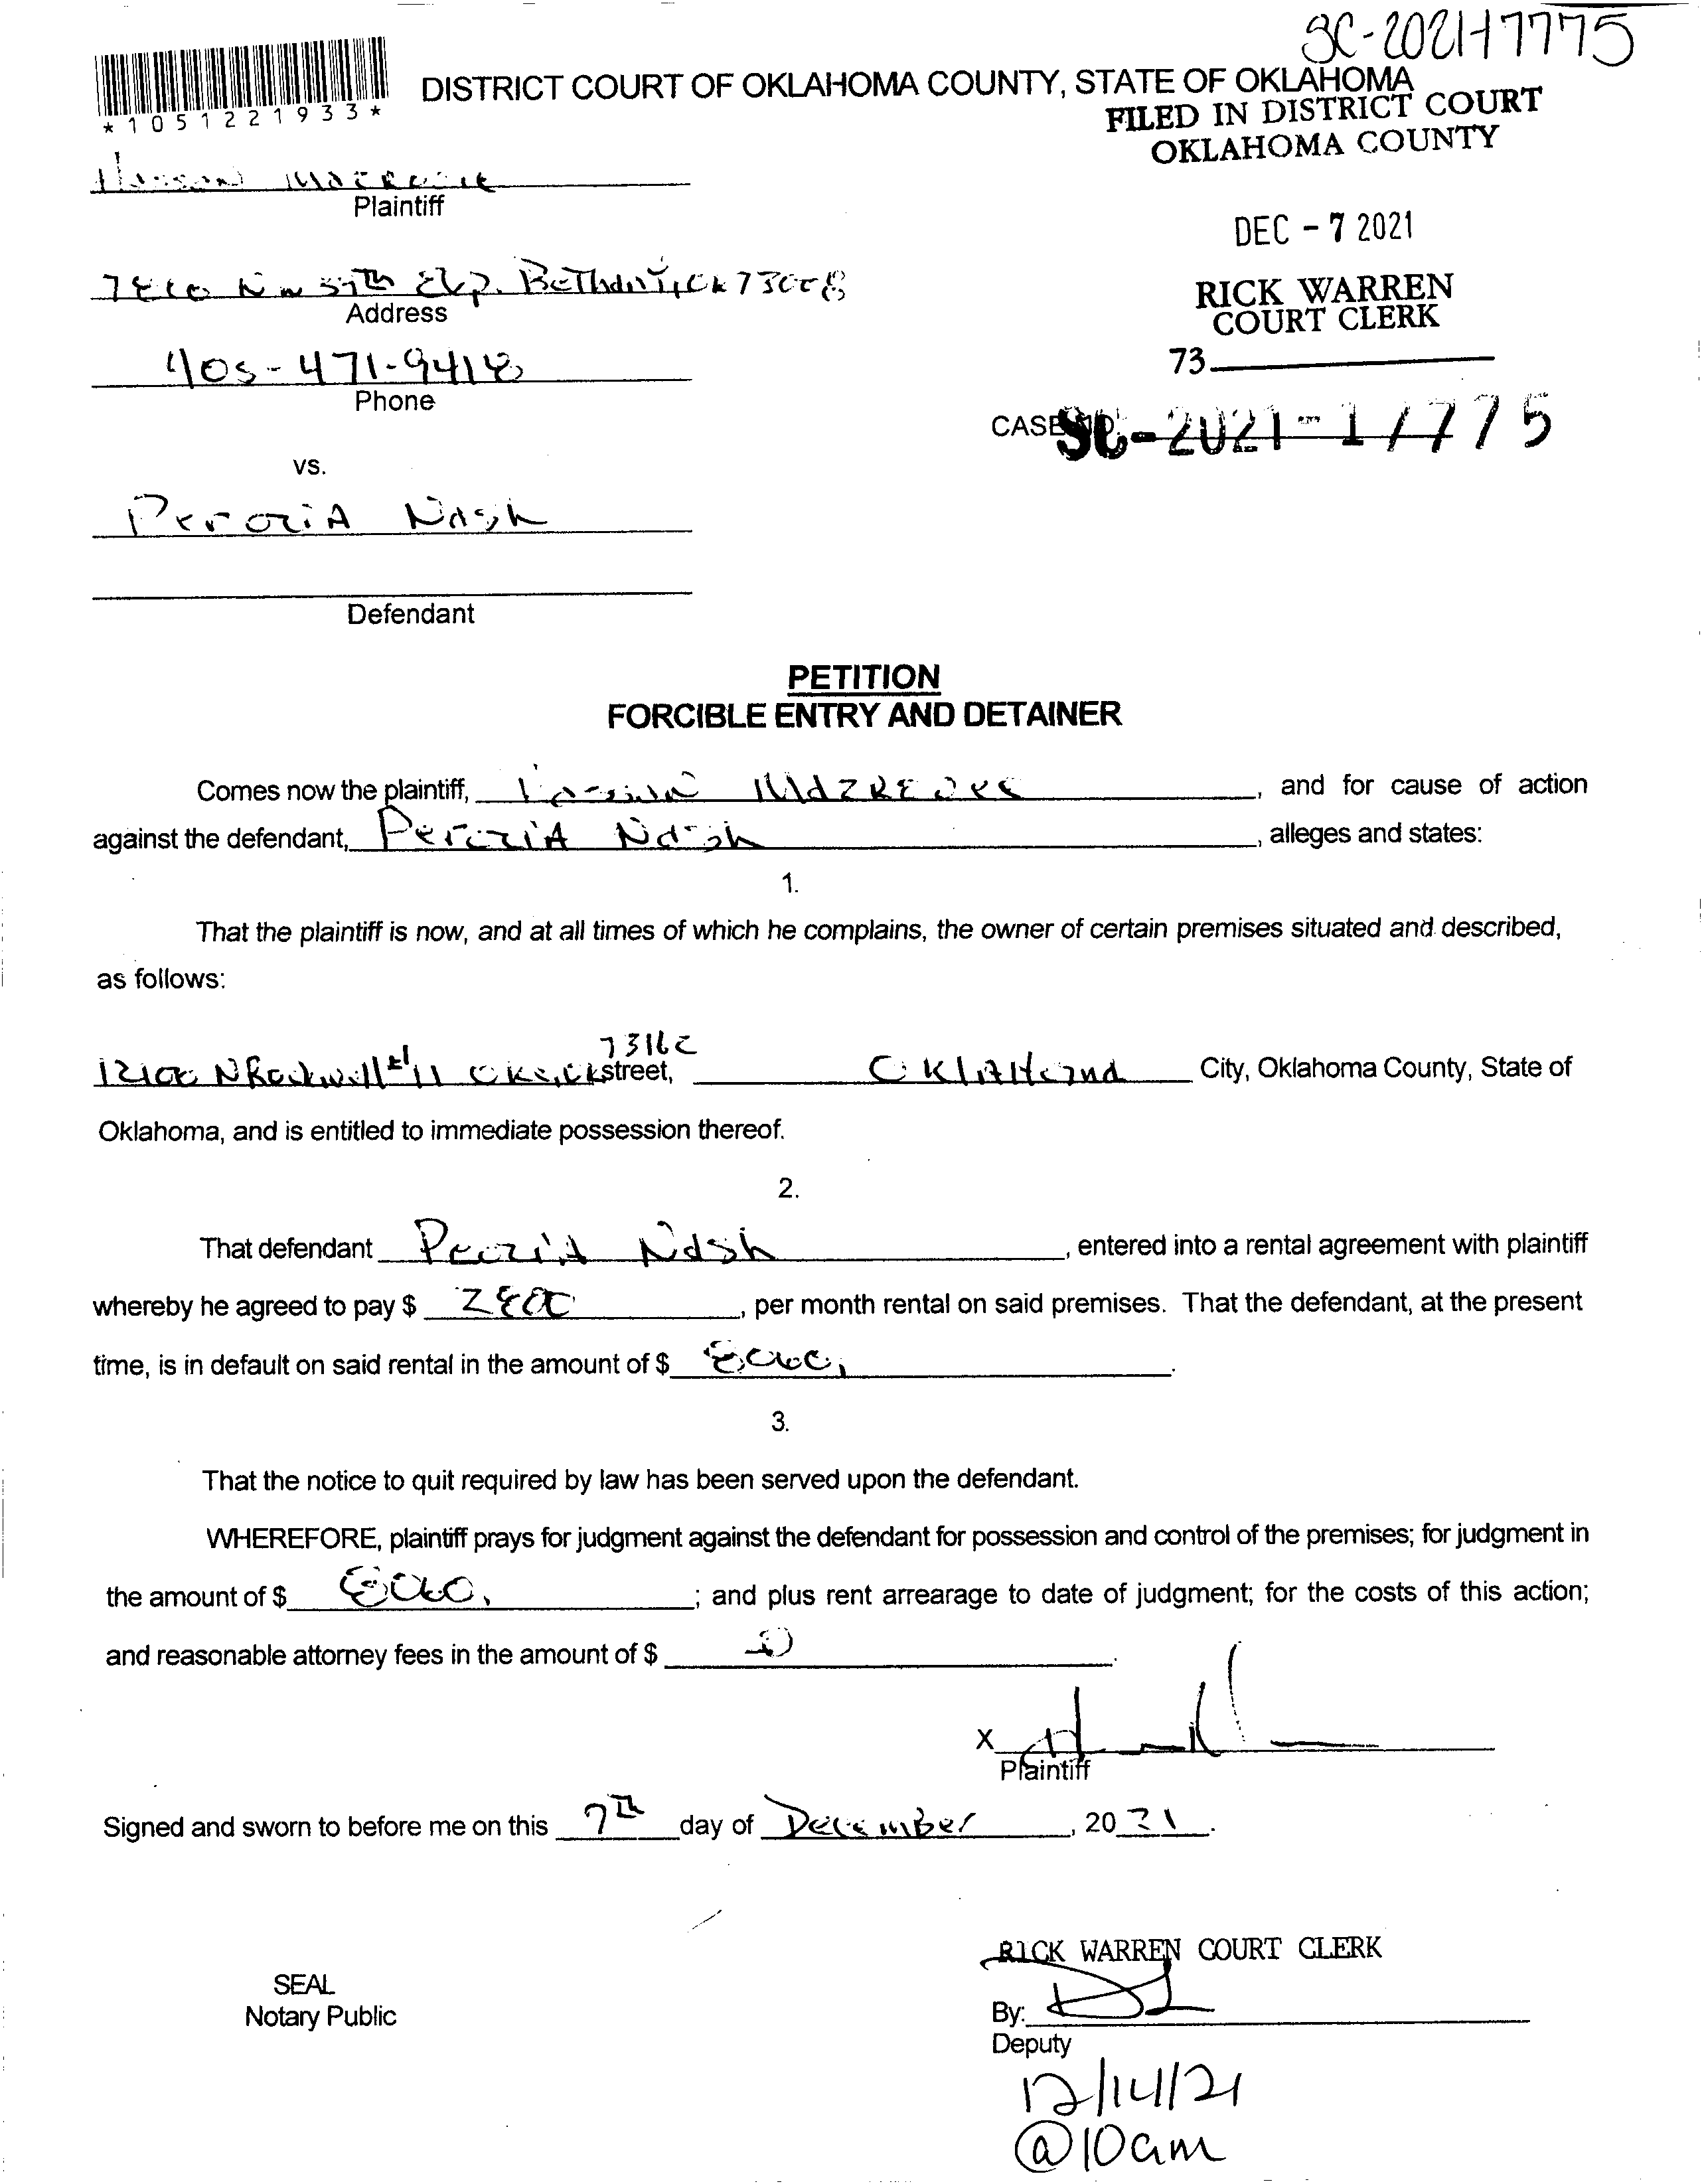 SC-2021-17775
*1051221933*
DISTRICT COURT OF OKLAHOMA COUNTY, STATE OF OKLAHOMA
FILED IN DISTRICT COURT
OKLAHOMA COUNTY
Plaintiff
DEC - 7 2021
Address
RICK WARREN
COURT CLERK
73
405-471-9418
Phone
CASE NO. SC-2021-17775
vs.
Nash
Defendant
PETITION
FORCIBLE ENTRY AND DETAINER
Comes now the plaintiff, , and for cause of action
against the defendant, Nash, alleges and states:
1.
That the plaintiff is now, and at all times of which he complains, the owner of certain premises situated and described,
as follows:
12100 N Rockwell #11 street, City, Oklahoma County, State of
Oklahoma, and is entitled to immediate possession thereof.
2.
That defendant Nash, entered into a rental agreement with plaintiff
whereby he agreed to pay $ , per month rental on said premises. That the defendant, at the present
time, is in default on said rental in the amount of $ .
3.
That the notice to quit required by law has been served upon the defendant.
WHEREFORE, plaintiff prays for judgment against the defendant for possession and control of the premises; for judgment in
the amount of $ ; and plus rent arrearage to date of judgment; for the costs of this action;
and reasonable attorney fees in the amount of $ .
X
Plaintiff
Signed and sworn to before me on this 7th day of December, 2021.
RICK WARREN COURT CLERK
SEAL
Notary Public
By:
Deputy
12/14/21
@10am